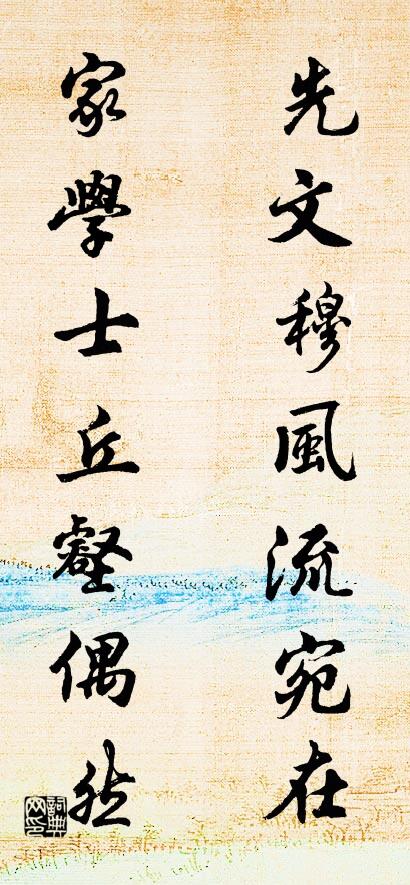 先文穆風流宛在
家學士丘壑偶然
詞典網印